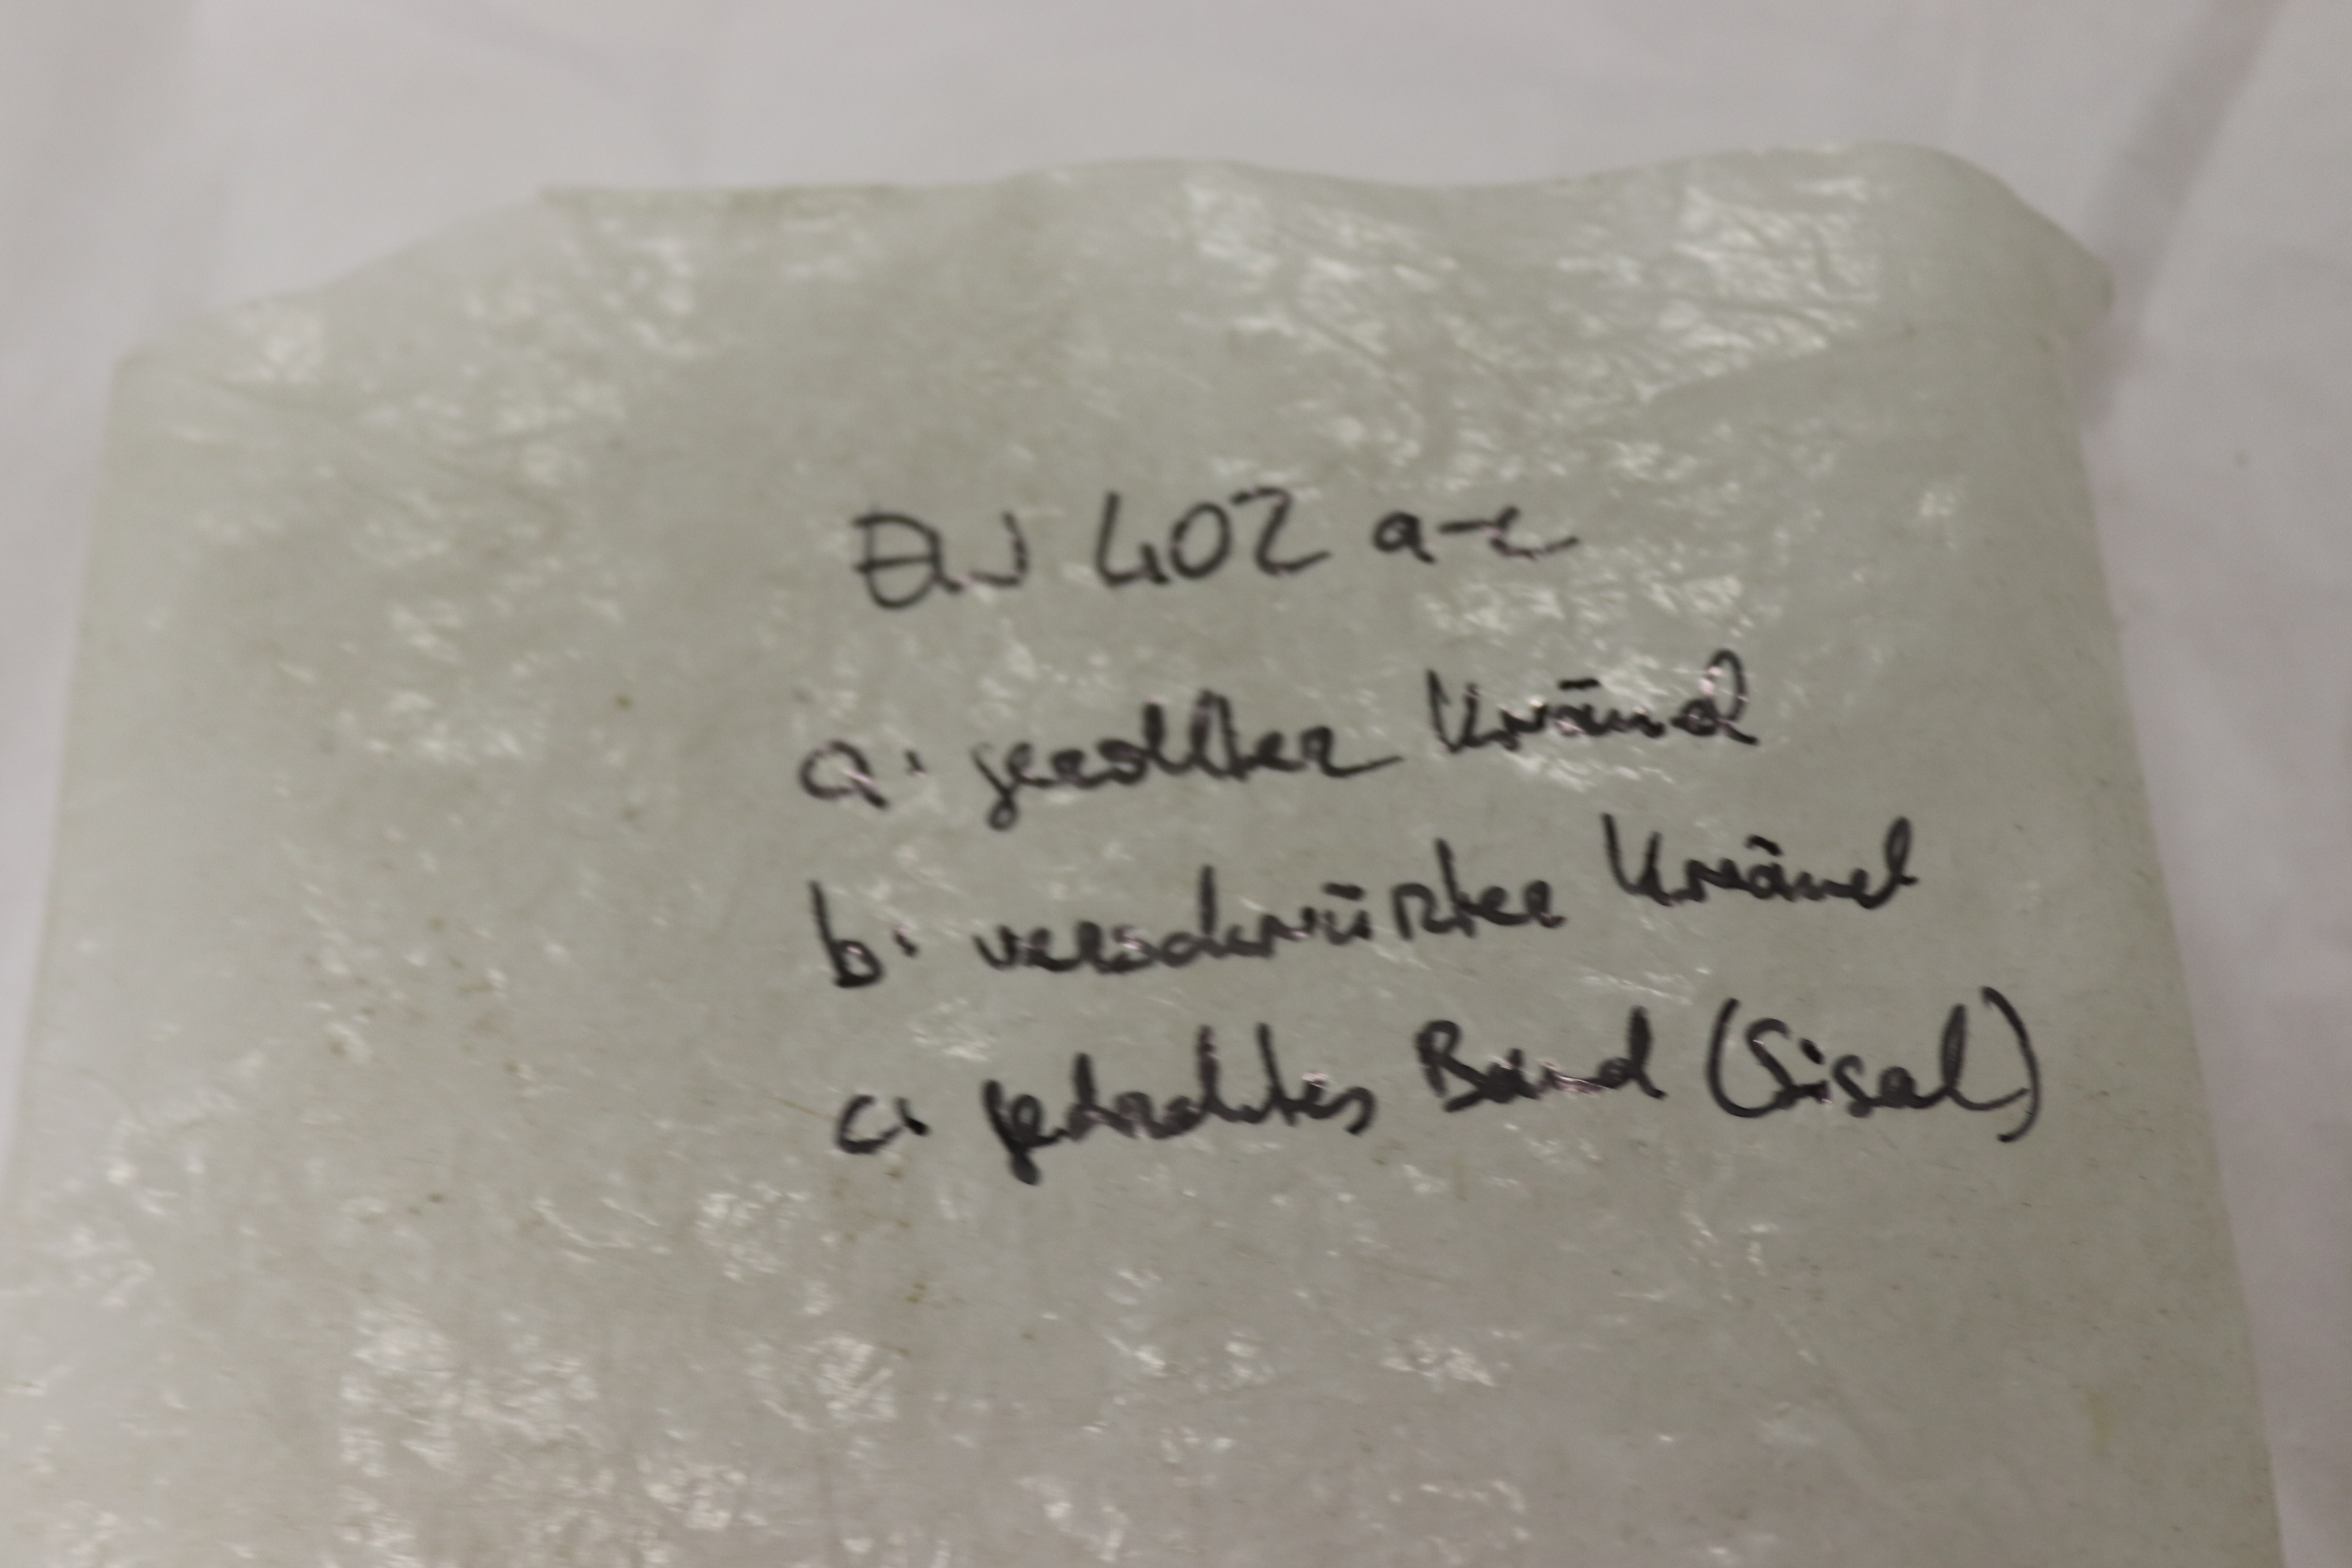 402 a-c
a: gerollter Knäuel
b: verschnürter Knäuel
c: gedrehtes Band (Sisal)